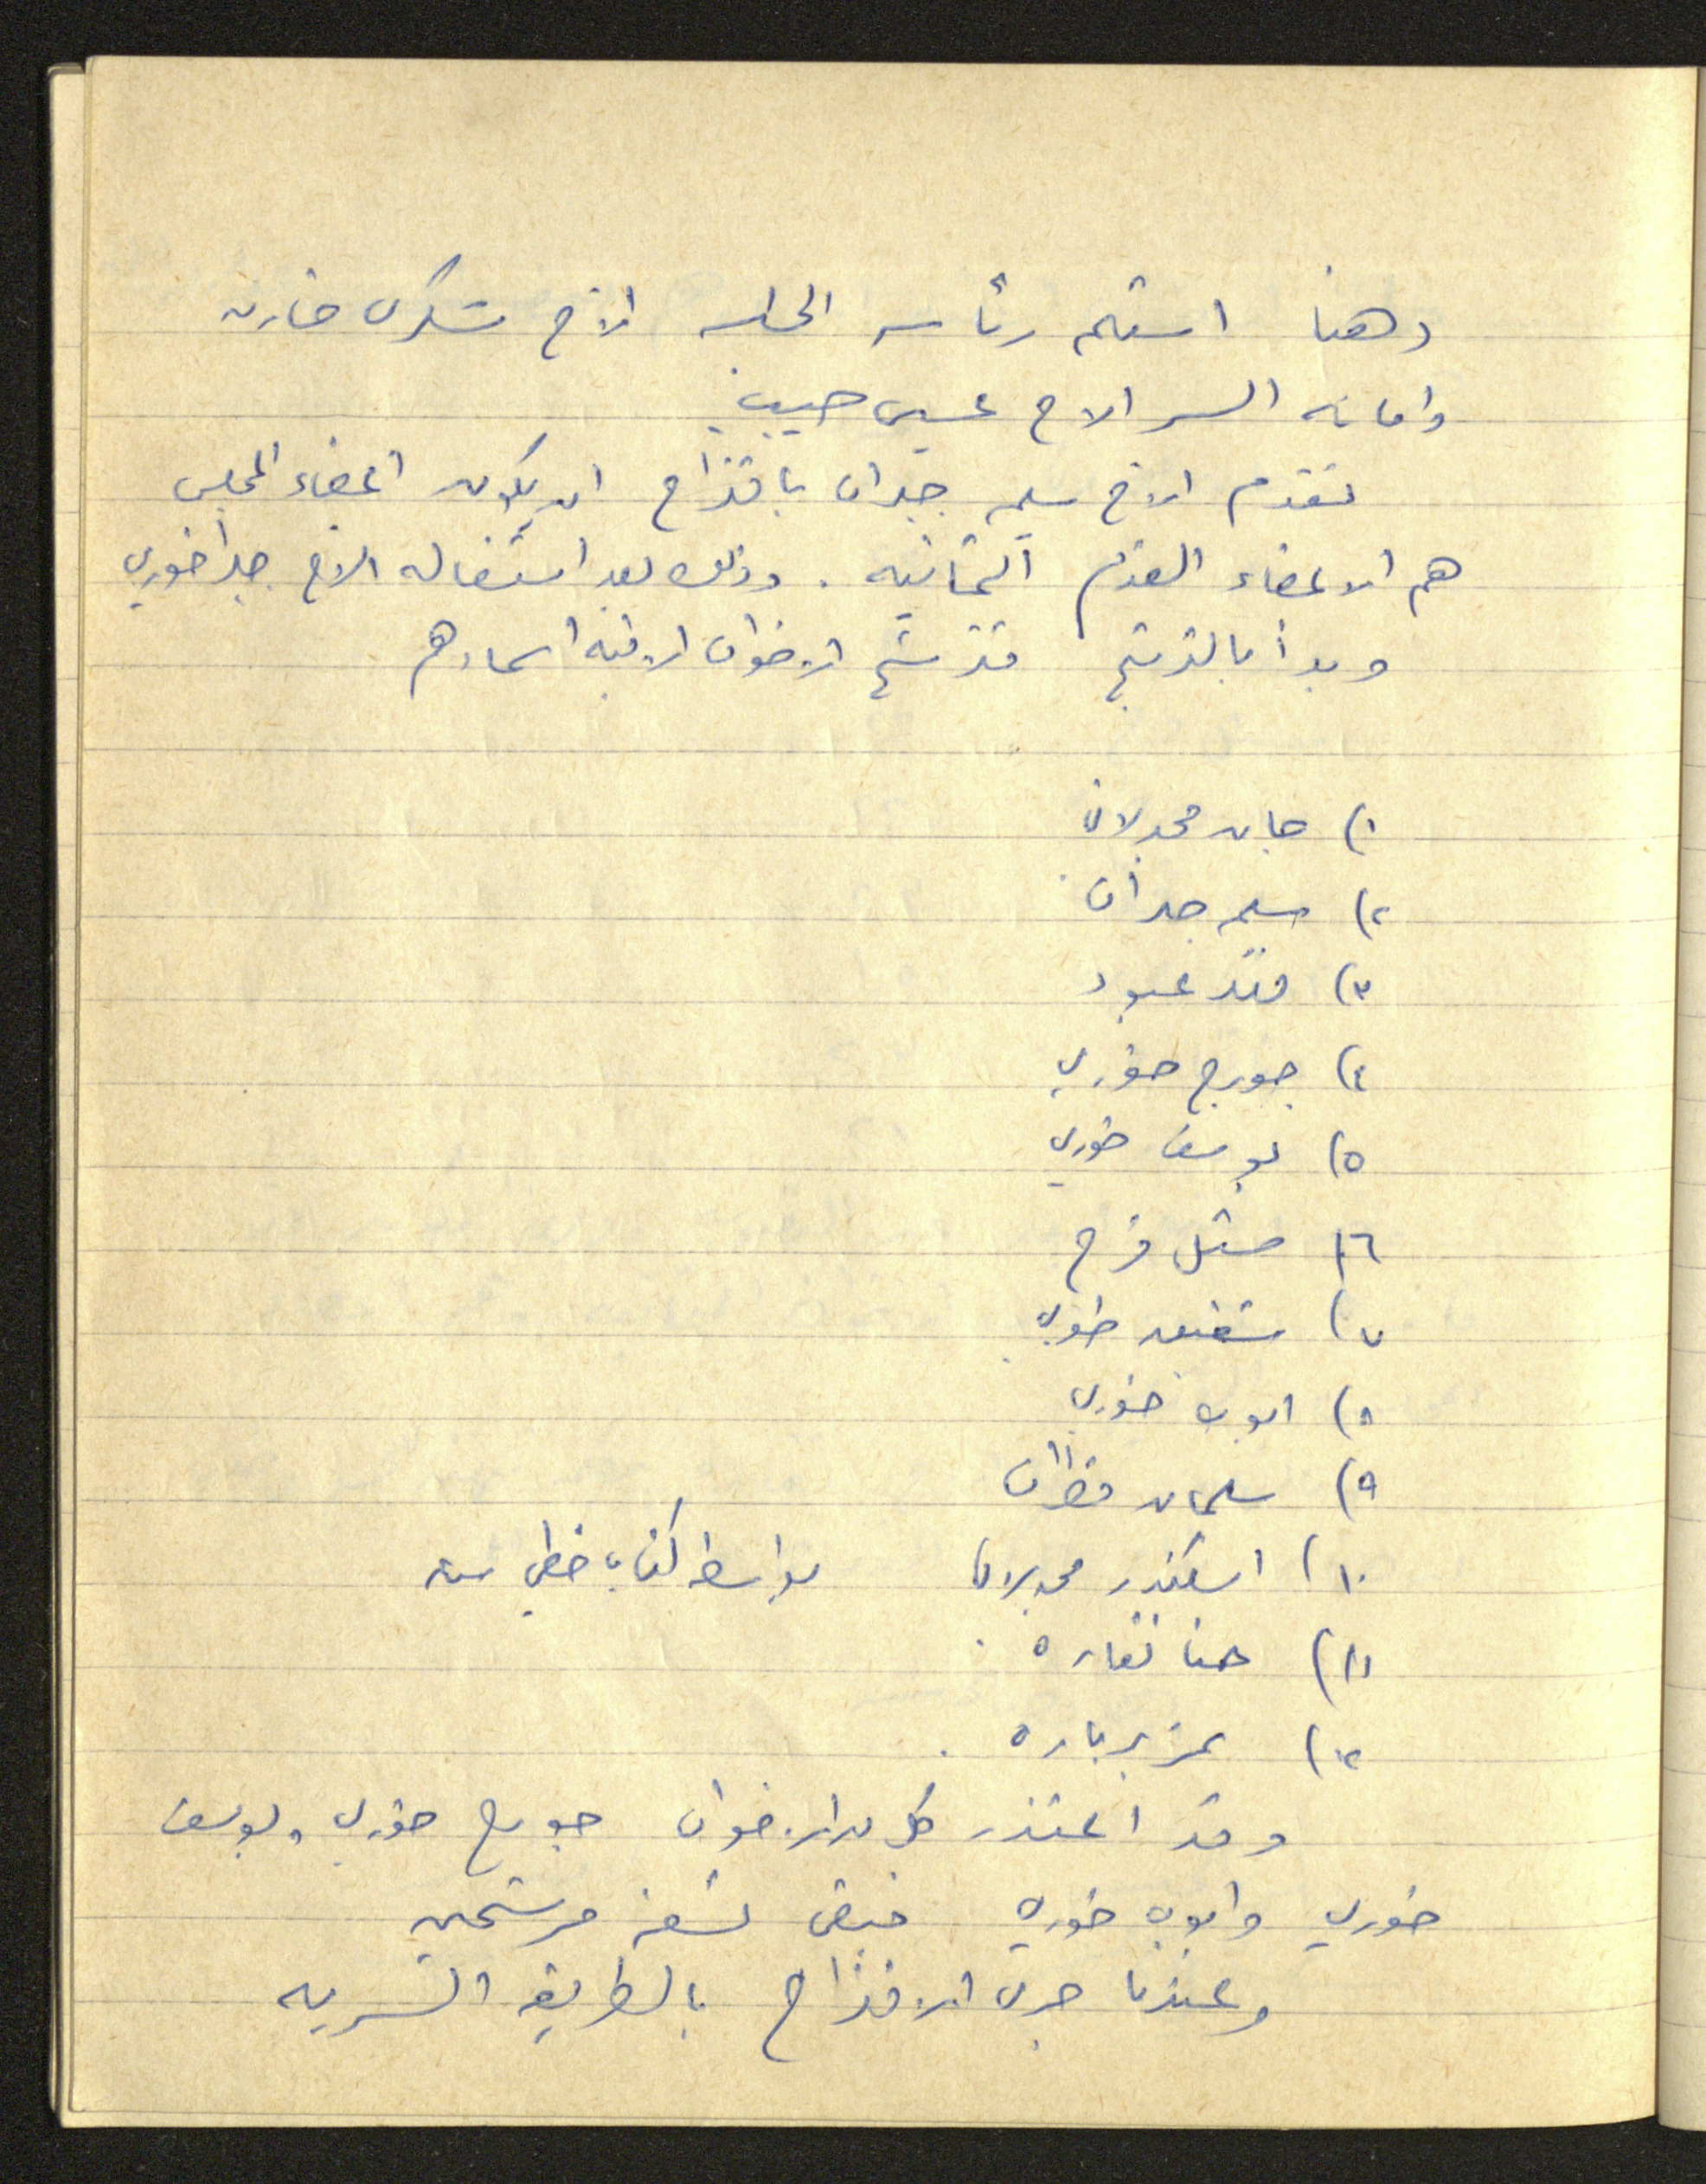 وهنا استلم رئاسه الجلسه الاخ شكري خازن
وامانه السر الاخ عيسى حبيب
تقدم الاخ سليم جبران باقتراح ان يكون اعضاء المجلس
هم الاعضاء القدم الثمانيه . وذلك بعد استقاله الاخ جبرا خوري
وبدأ بالترشيح فترشح الاخوان الاتيه اسماؤهم
١) جان مجدلاني
٢) سليم جبران
٣) فؤاد عبود
٤) جورج خوري
٥) يوسف خوري
٦) ميشل فرح
٧) شفيق خوري
٨) ايوب خوري
٩) سليمان قطران
١٠) اسكندر مجدلاني بواسطه كتاب خطي منه
١١) حنا نقاره .
١٢) عزيز باره .
وقد اعتذر كل من الاخوان جورج خوري ويوسف
خوري وايوب خوري فبقى تسعه مرشحين
وعندما جرى الاقتراح بالطريقه السريه